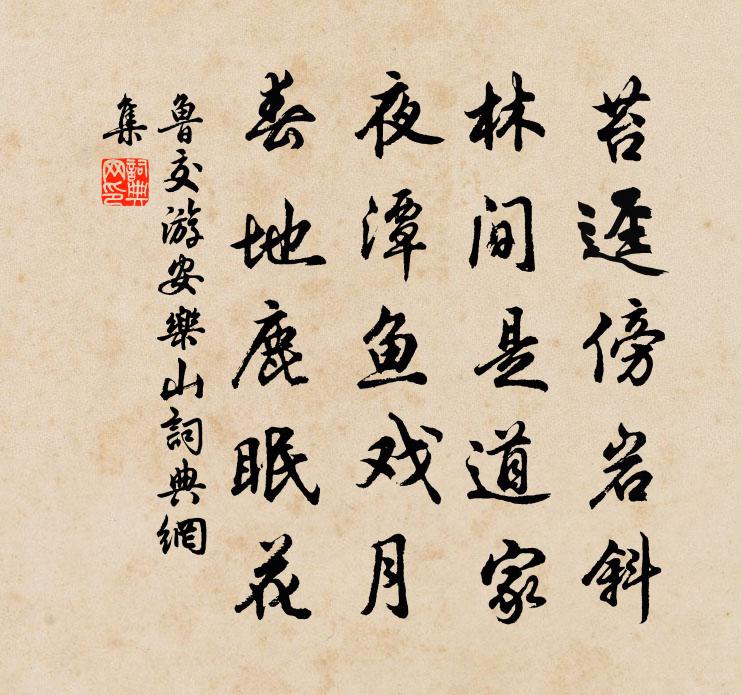 苔迳傍岩斜
林间是道家
夜潭鱼戏月
春地鹿眠花
鲁交游安樂山詞典網
集
詞典
网印